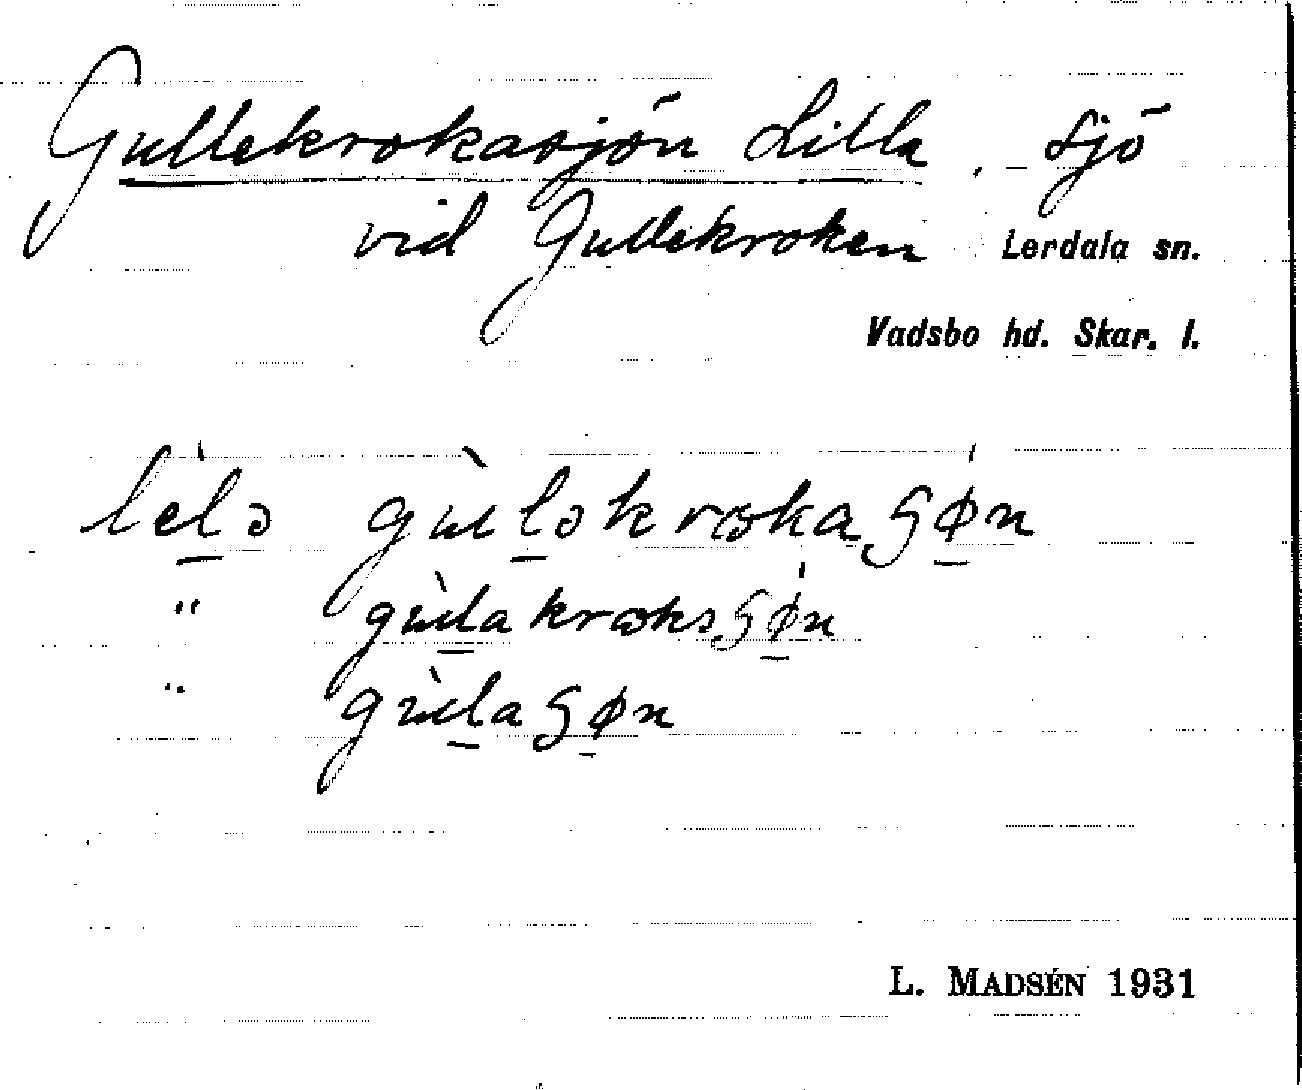 Gullekrokasjön Lilla, Sjö
vid Gullekroken Lerdala sn.
Vadsbo hd. Skar. l.
lèlə gùləkrokaʂøn
" gùlakrokəʂøn
" gùlaʂøn
L. MADSÉN 1931